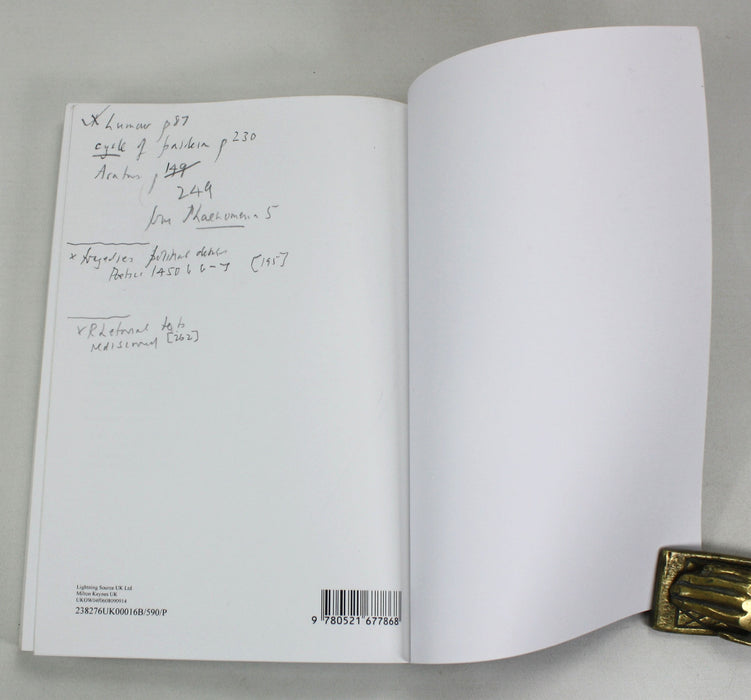 x humour p 87
cycle of paideia p 230
Aratus p 149
249
from Phaenomena 5
x tragedies political debate
Poetics 1450 b 6-7 [195]
x Rhetorical texts
rediscovered [262]
Lightning Source UK Ltd
Milton Keynes UK
238276UK00016B/590/P
9 780521 677868